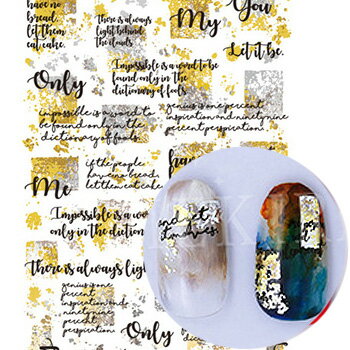 have no
bread,
let them
eat cake.
There is always
light behind
the clouds
My
You
Let it be.
Only
Impossible is a word to be
found only in the
dictionary of fools.
impossible is a word to
be found only in the
dictionary of fools.
genius is one percent
inspiration and ninety nine
percent perspiration.
Me
if the people
have no bread,
let them eat cake.
ha
Impossible is a w
only in the diction
There is always ligh
genius is one
percent
inspiration and
ninety nine
percent
perspiration
Only
and yet
it moves.